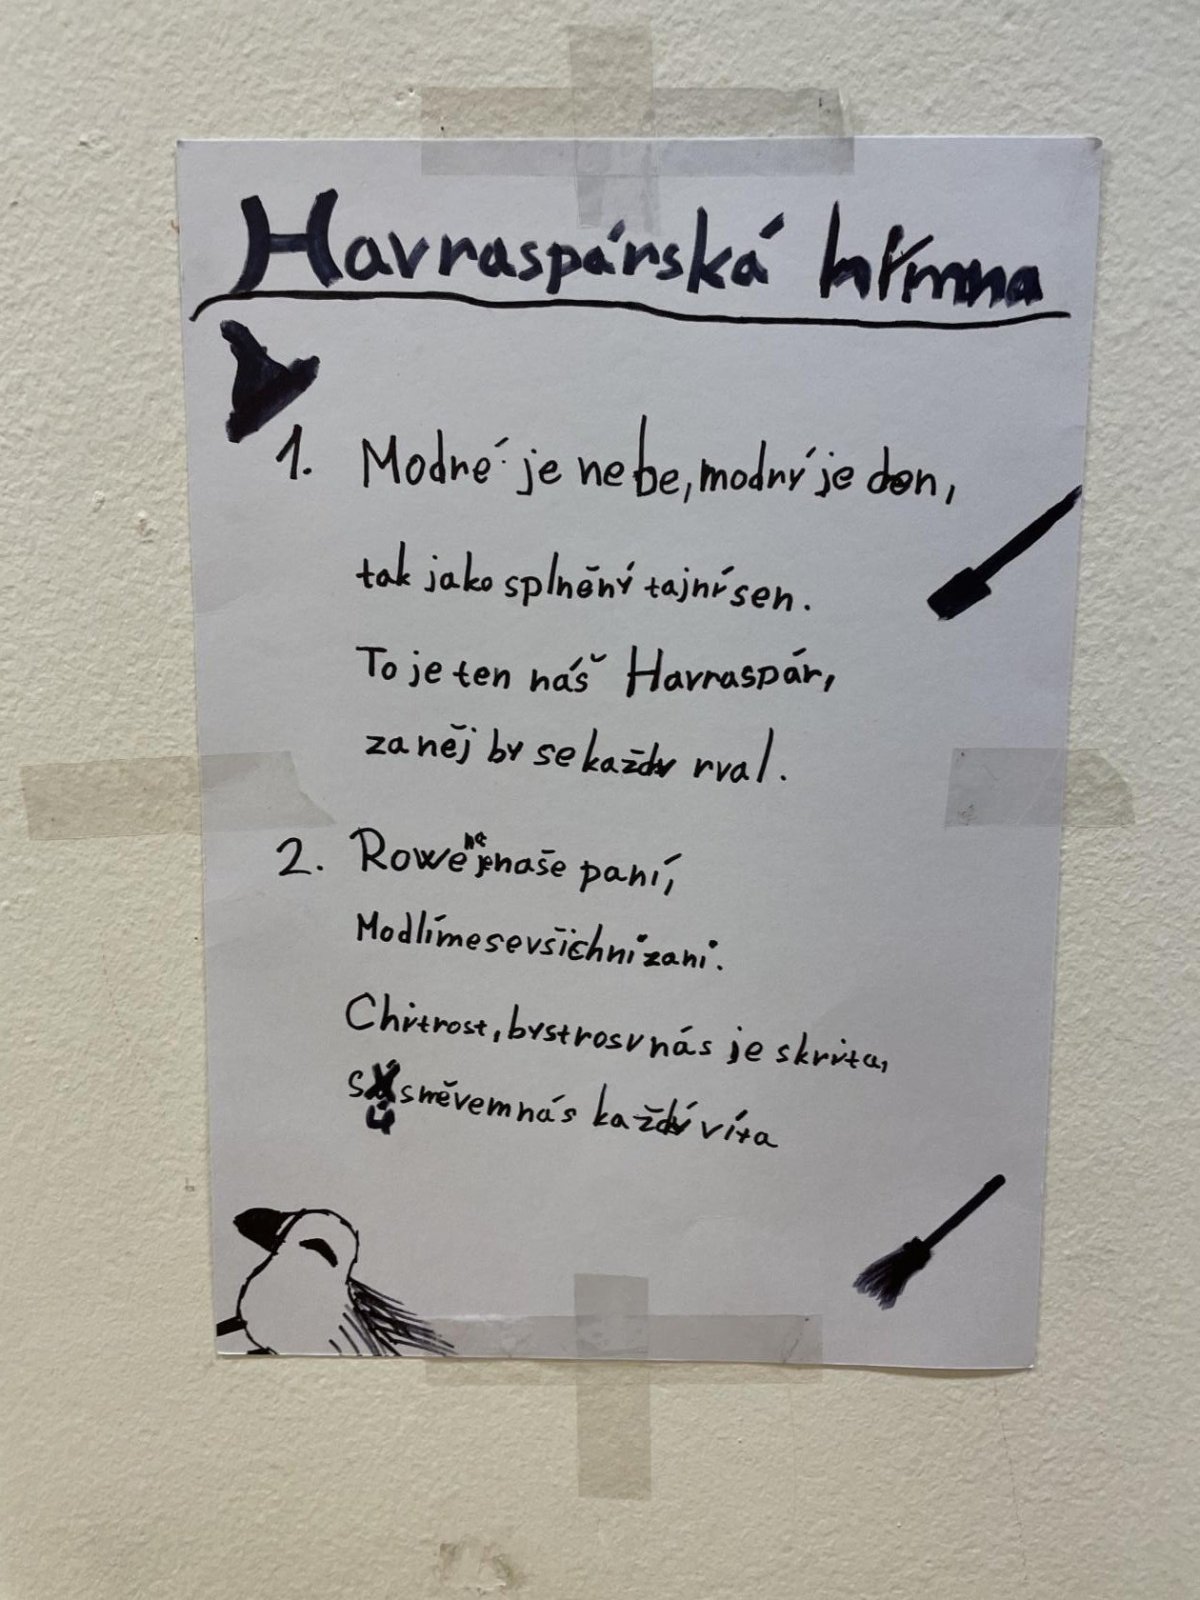 Havraspárská hýmna
1. Modré je nebe, modrý je den,
tak jako splněný tajný sen.
To je ten náš Havraspár,
za něj by se každý rval.
2. Rowena je naše paní,
Modlíme se všichni za ni.
Chytrost, bystros v nás je skryta,
S úsměvem nás každý víta